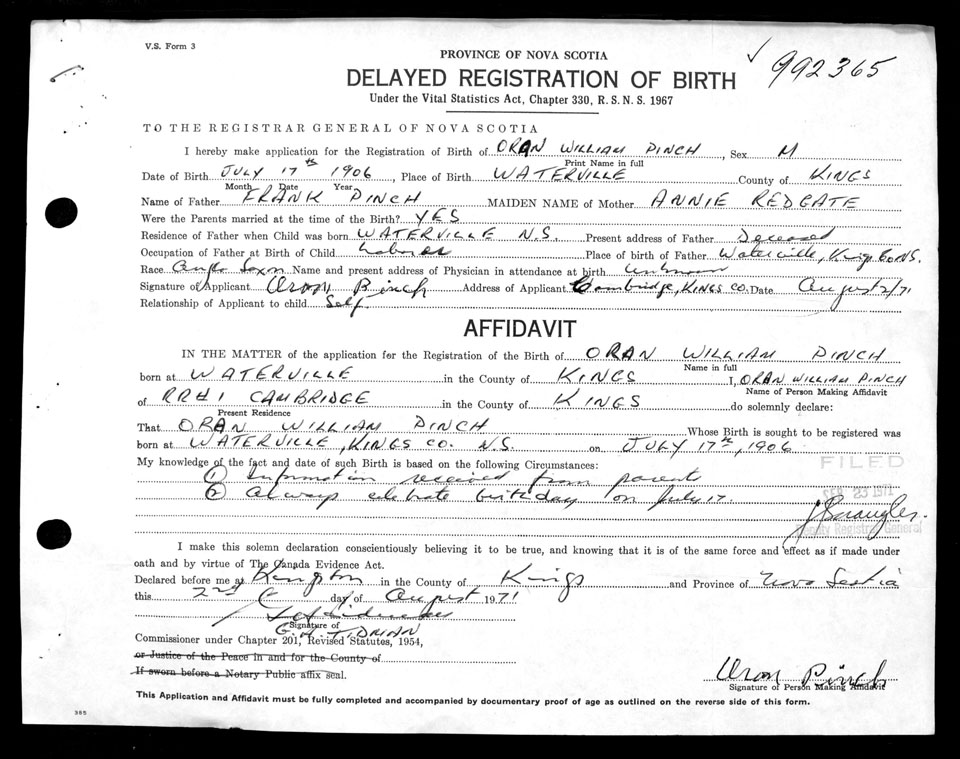 V.S. Form 3
992365
PROVINCE OF NOVA SCOTIA
DELAYED REGISTRATION OF BIRTH
Under the Vital Statistics Act, Chapter 330, R.S.N.S. 1967
TO THE REGISTRAR GENERAL OF NOVA SCOTIA
I hereby make application for the Registration of Birth of ORAN WILLIAM PINCH, Sex M
Print Name in full
Date of Birth JULY 17th 1906, Place of Birth WATERVILLE County of KINGS
Month Date Year
Name of Father FRANK PINCH MAIDEN NAME of Mother ANNIE REDGATE
Were the Parents married at the time of the Birth? YES
Residence of Father when Child was born WATERVILLE N.S. Present address of Father Deceased
Occupation of Father at Birth of Child Laborer Place of birth of Father Waterville, Kings Co N.S.
Race Anglo Saxon Name and present address of Physician in attendance at birth unknown
Signature of Applicant Oran Pinch Address of Applicant Cambridge, KINGS CO. Date August 2/71
Relationship of Applicant to child Self
AFFIDAVIT
IN THE MATTER of the application for the Registration of the Birth of ORAN WILLIAM PINCH
Name in full
born at WATERVILLE in the County of KINGS I, ORAN WILLIAM PINCH
Name of Person Making Affidavit
of RR#1 CAMBRIDGE in the County of KINGS do solemnly declare:
Present Residence
That ORAN WILLIAM PINCH Whose Birth is sought to be registered was
born at WATERVILLE, KINGS CO. N.S. on JULY 17th, 1906
My knowledge of the fact and date of such Birth is based on the following Circumstances:
FILED
① Information received from parents
② Always celebrate birthday on July 17.
Deputy Registrar General
I make this solemn declaration conscientiously believing it to be true, and knowing that it is of the same force and effect as if made under
oath and by virtue of The Canada Evidence Act.
Declared before me at Kingston in the County of Kings and Province of Nova Scotia
this 2nd day of August 1971
Signature of
Commissioner under Chapter 201, Revised Statutes, 1954,
or Justice of the Peace in and for the County of
If sworn before a Notary Public affix seal.
Oran Pinch
Signature of Person Making Affidavit
This Application and Affidavit must be fully completed and accompanied by documentary proof of age as outlined on the reverse side of this form.
385